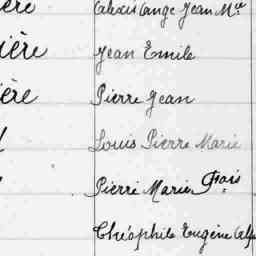 ère Alexis Ange Jean M^ie
ière Jean Emile
ère Pierre Jean
Louis Pierre Marie
Pierre Marie Fçois
Théophile Eugène